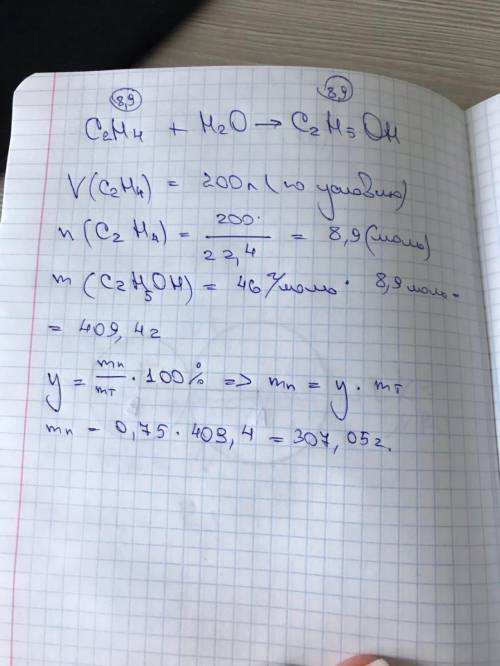 8,9 8,9
C₂H₄ + H₂O → C₂H₅OH
V(C₂H₄) = 200л (по условию)
n(C₂H₄) = 200 / 22,4 = 8,9 (моль)
m(C₂H₅OH) = 46 г/моль · 8,9 моль =
= 409,4 г
y = mп/mт · 100% => mп = y · mт
mп = 0,75 · 409,4 = 307,05 г.